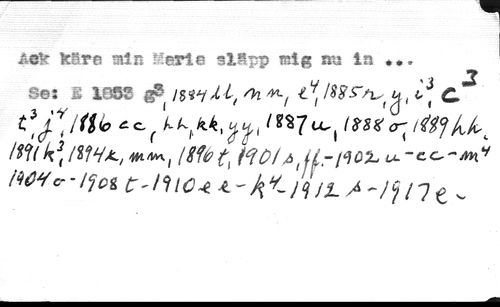 Ack käre min Marie släpp mig nu in ...
Se: E 1853 g³, 1884 ll, nn, e⁴, 1885 n, y, i³, c³
t³, j⁴, 1886 cc, hh, kk, yy, 1887 u, 1888 o, 1889 hh,
1891 k³, 1894 k, mm, 1896 t, 1901 s, ff.-1902 u-cc-m⁴
1904 o-1908 t-1910 ee-k⁴-1912 s-1917 e-